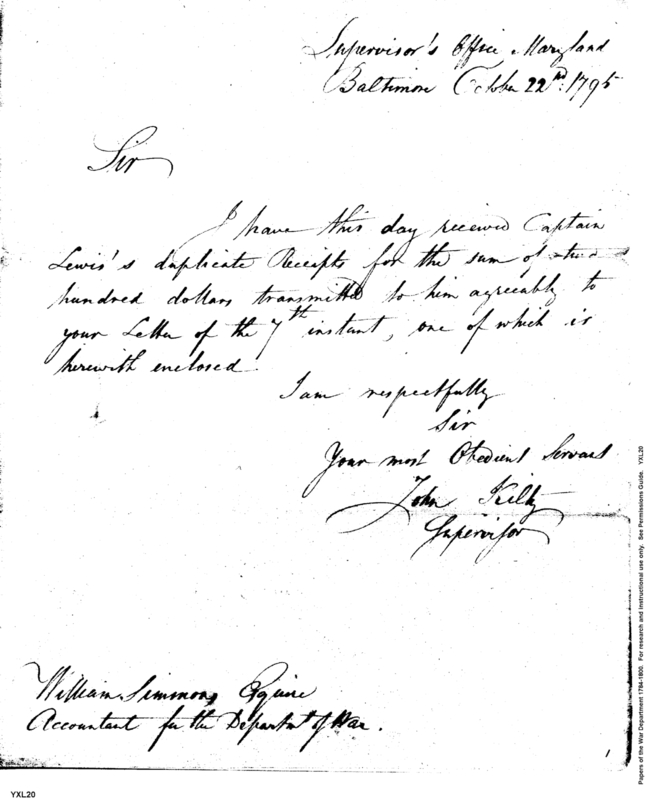 Supervisor's Office Maryland
Baltimore October 22nd: 1795
Sir
I have this day received Captain
Lewis's duplicate Receipts for the sum of two
hundred dollars transmitted to him agreeably to
your Letter of the 7th instant, one of which is
herewith enclosed.
I am respectfully
Sir
Your most Obedient Servant
John Kilty
Supervisor
William Simmons Esquire
Accountant for the Departmt of War.
YXL20
Papers of the War Department 1784-1800. For research and instructional use only. See Permissions Guide. YXL20